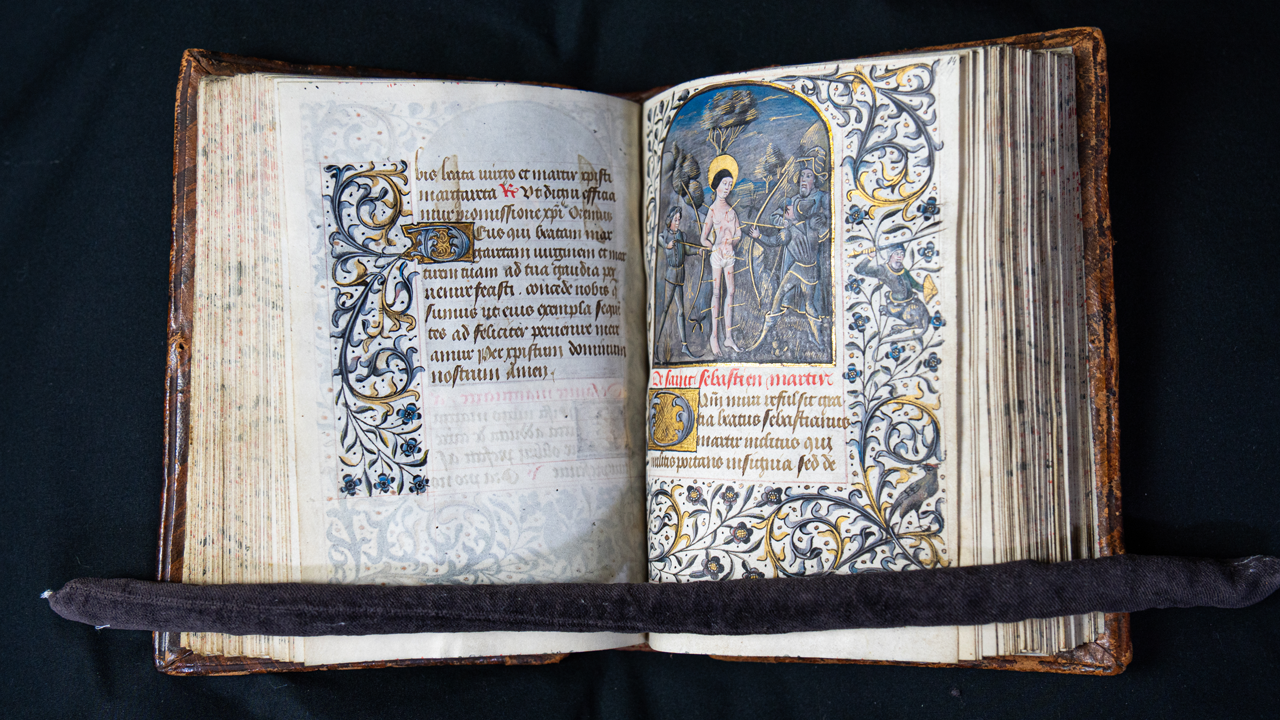 bis beata uirgo et martir xpisti
margareta ℟ Vt digni efficia
mur promissione xpi Oremus
Deus qui beatam mar
garetam uirginem et mar
tirem tuam ad tua gaudia per
uenire fecisti . concede nobis q
sumus ut eius exempla sequē
tes ad te feliciter peruenire mere
amur Per xpistum dominum
nostrum Amen .
De saint sebastien martir
beatus sebastianus
martir inclitus qui
militis portans insignia sed de